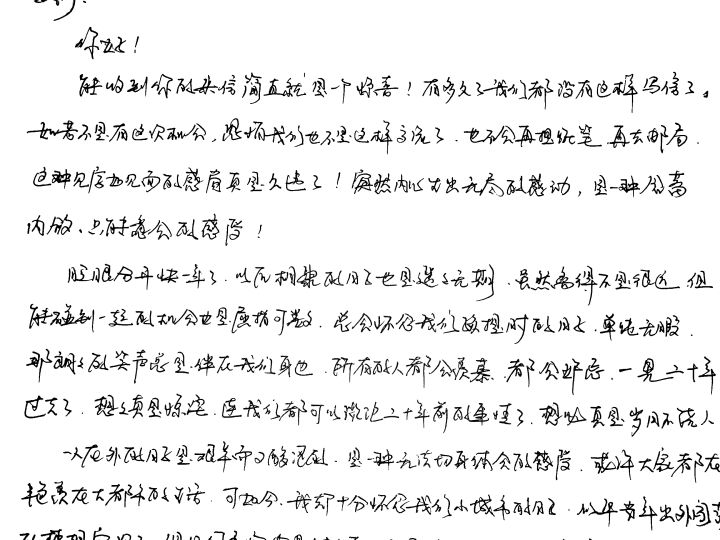 你好！
能收到你的来信简直就是一个惊喜！有多久了我们都没有这样写信了。
如若不是有这次机会，恐怕我们也不是这样交流了、也不会再提纸笔 再去邮局、
这种见字如见面的感眉真是久违了！突然内心发出无名的感动，是一种含蓄
内敛、只能意会的感觉！
眨眼分开快一年了、以后相聚的日子也是遥遥无期、虽然离得不是很远 但
能碰到一起的机会也是屈指可数、总会怀念我们一起时的日子、单纯无暇、
那朗朗的笑声总是伴在我们身边、所有的人都会羡慕、都会妒忌、一晃二十年
过去了、想想真是惊讶、连我们都可以谈论二十年前的事情了、想必真是岁月不饶人
一人在外的日子是艰辛而又酸涩的、是一种无法切身体会的感觉、或许大家都在
羡慕在大都市的生活、可如今、我却十分怀念我们小城市的日子、 出外闯